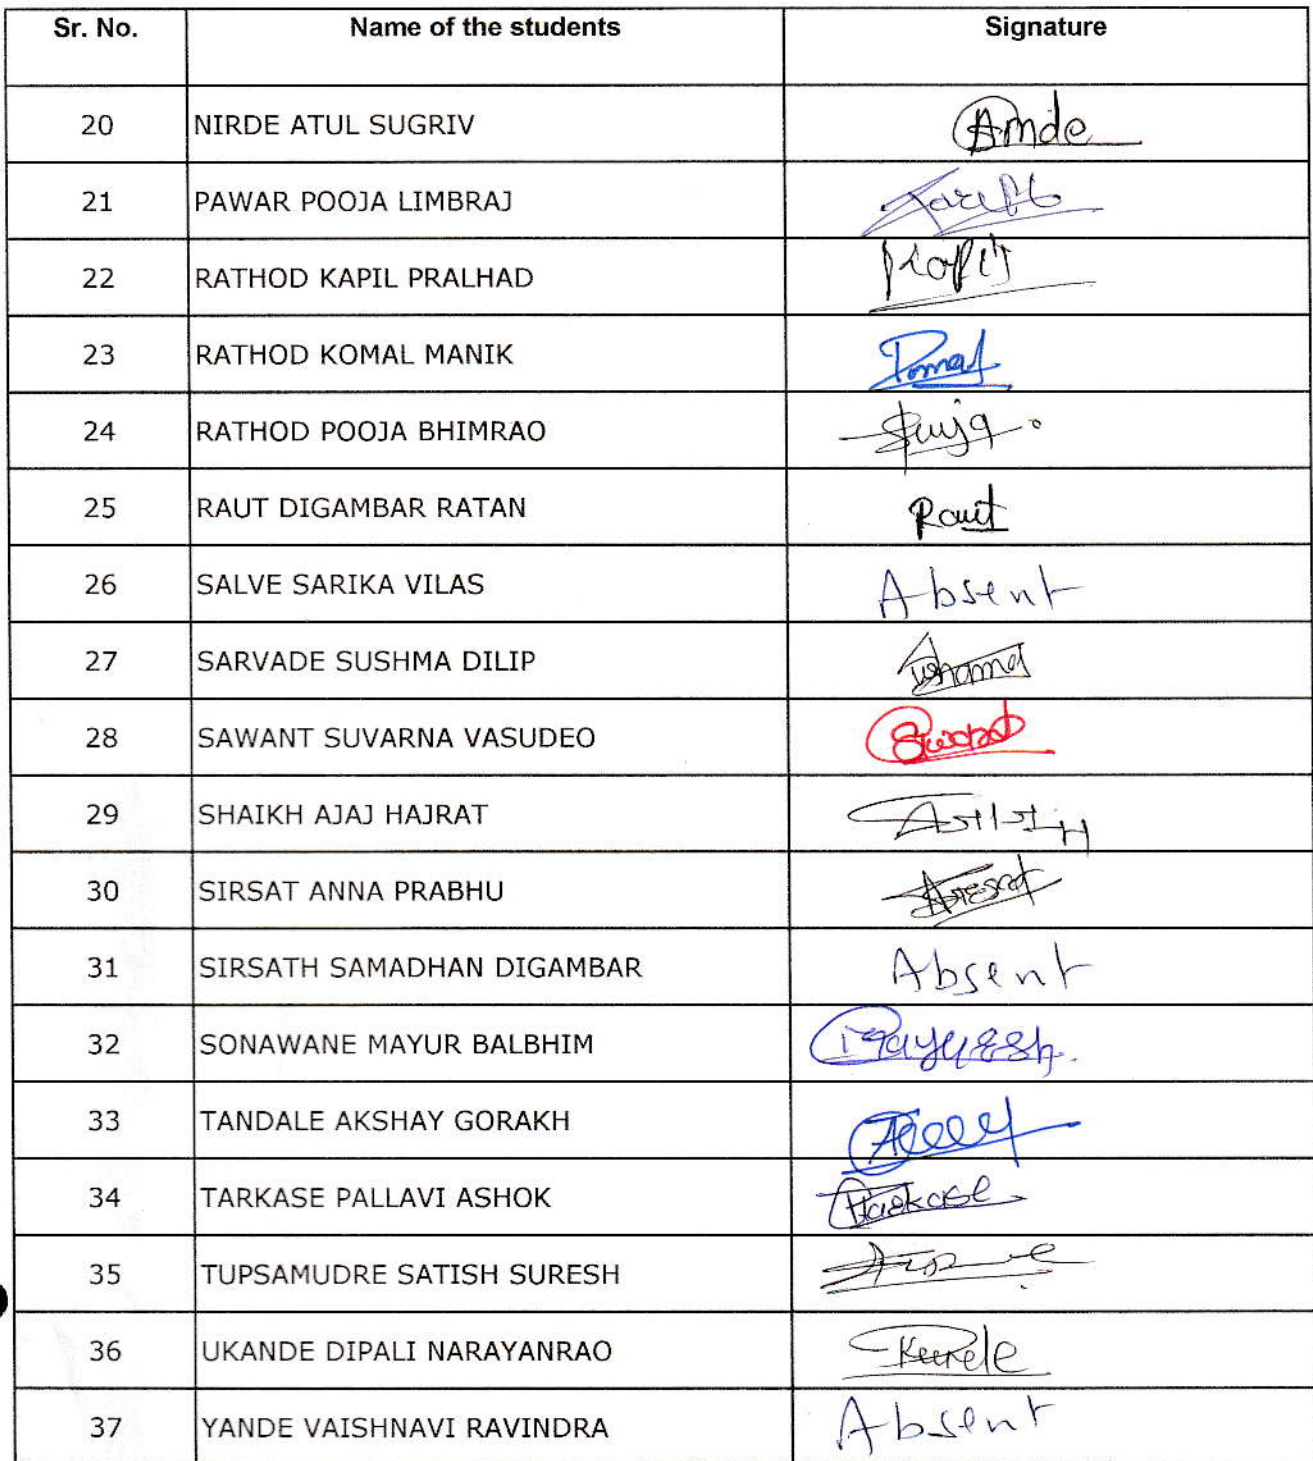 Sr. No. Name of the students Signature
20 NIRDE ATUL SUGRIV
21 PAWAR POOJA LIMBRAJ
22 RATHOD KAPIL PRALHAD
23 RATHOD KOMAL MANIK
24 RATHOD POOJA BHIMRAO
25 RAUT DIGAMBAR RATAN Raut
26 SALVE SARIKA VILAS Absent
27 SARVADE SUSHMA DILIP
28 SAWANT SUVARNA VASUDEO
29 SHAIKH AJAJ HAJRAT
30 SIRSAT ANNA PRABHU
31 SIRSATH SAMADHAN DIGAMBAR Absent
32 SONAWANE MAYUR BALBHIM
33 TANDALE AKSHAY GORAKH
34 TARKASE PALLAVI ASHOK
35 TUPSAMUDRE SATISH SURESH
36 UKANDE DIPALI NARAYANRAO
37 YANDE VAISHNAVI RAVINDRA Absent